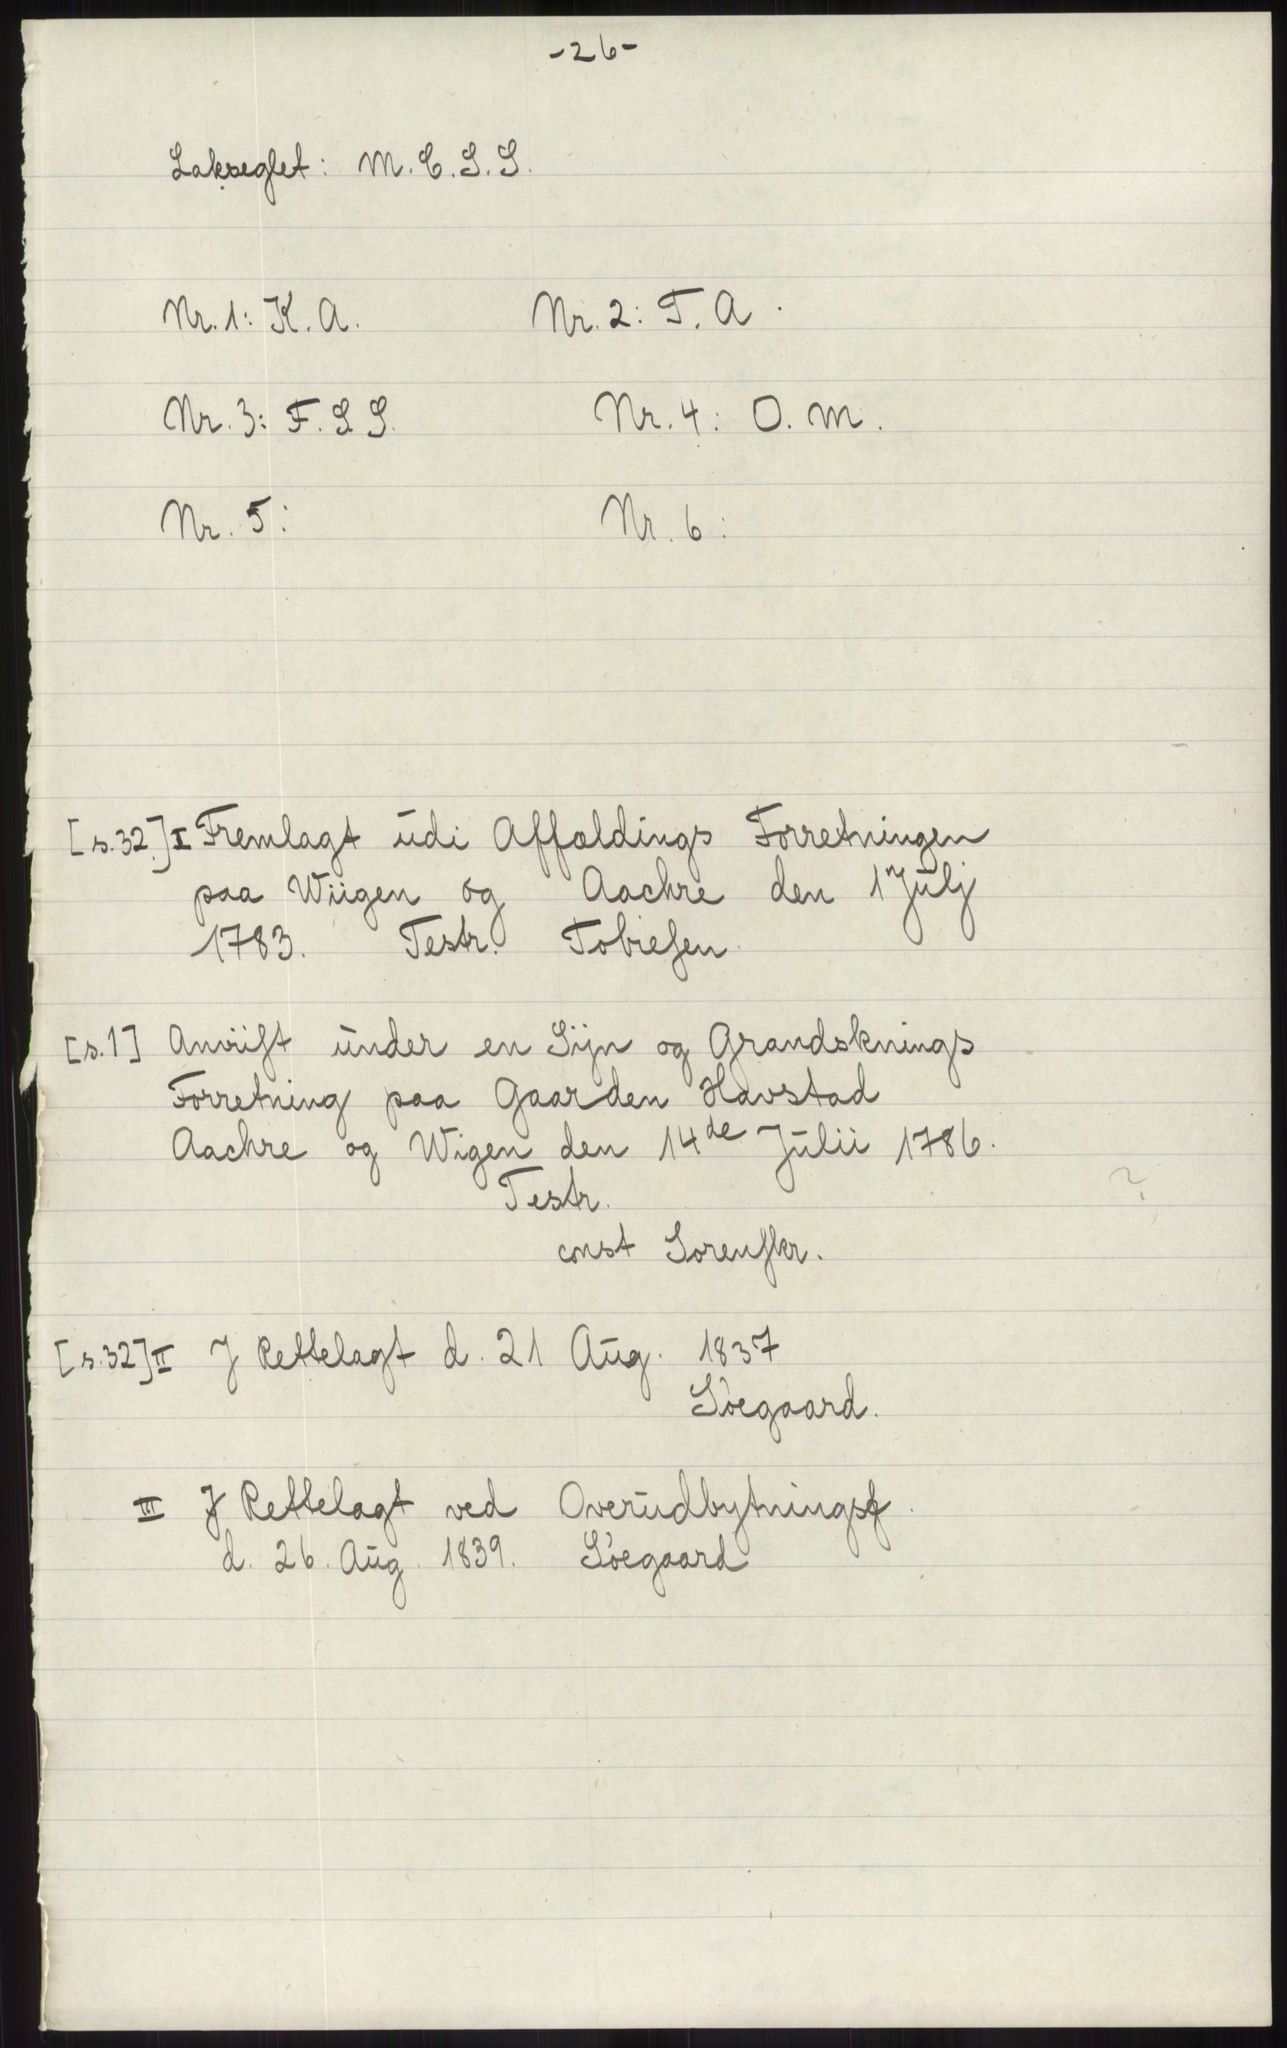 -26-
Lakseglet: M.C.S.S.
Nr. 1: K. A. Nr. 2: T. A.
Nr. 3: F. S. S. Nr. 4: O. M.
Nr. 5: Nr. 6:
[s.32.] I Fremlagt ŭdi Affældings Forretningen
paa Wiigen og Aachre den 1 Jŭlj
1783. Testr. Tobiesen
[s.1] Anviist ŭnder en Sijn og Grandsknings
Forretning paa Gaarden Havstad
Aachre og Wigen den 14de Jŭlii 1786.
Testr. ?
const Sorenskr.
[s.32] II J Rettelagt d. 21 Aŭg. 1837
Söegaard.
III J Rettelagt ved Overŭdbytningsf.
d. 26. Aŭg. 1839. Söegaard